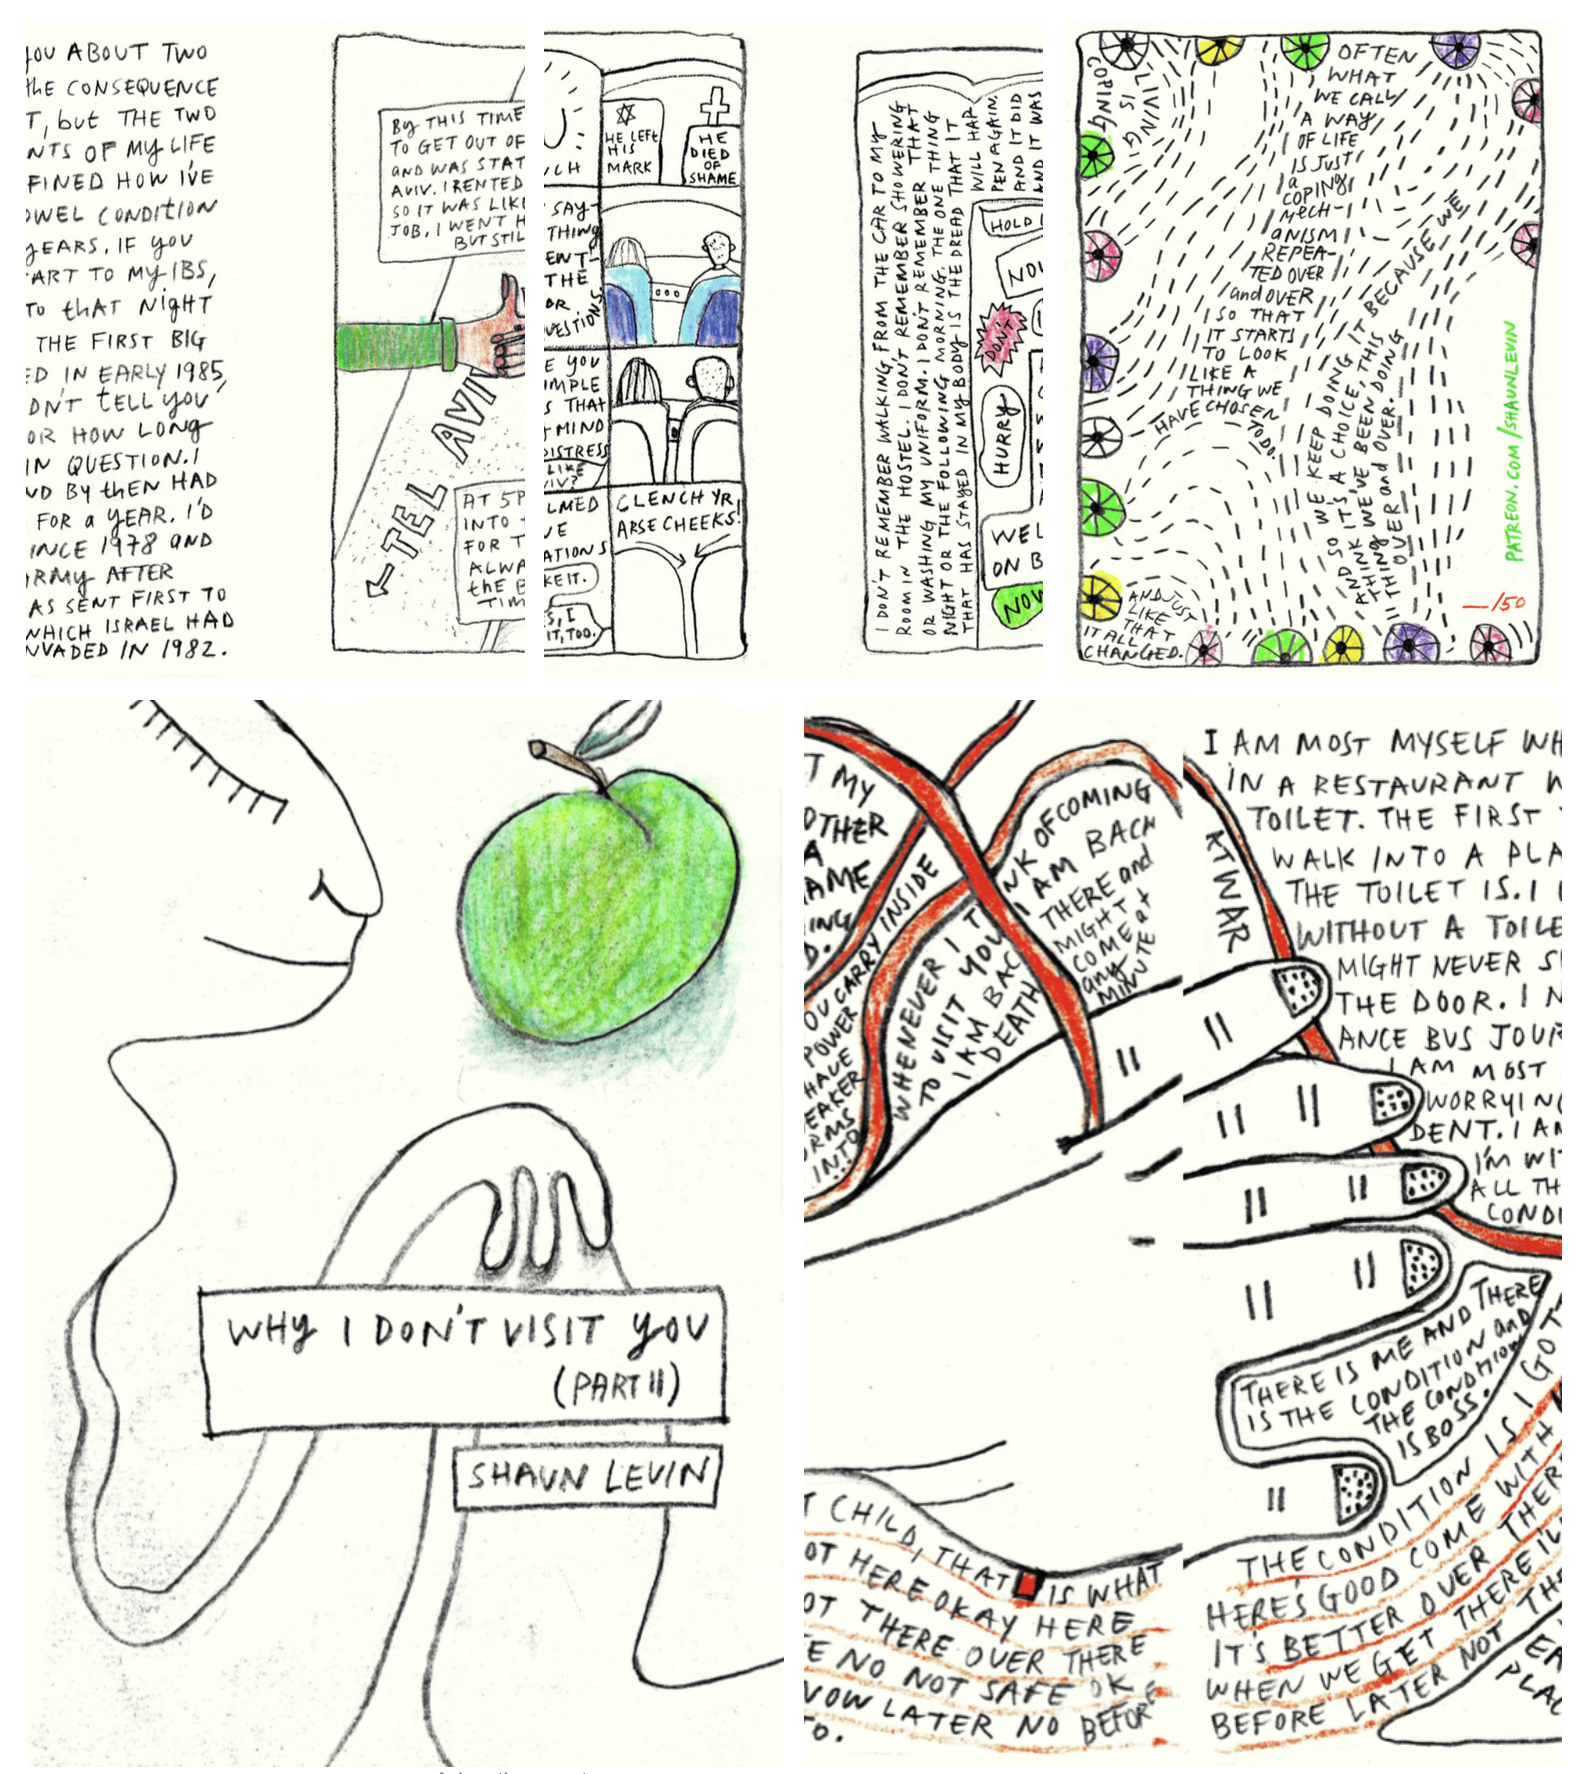 YOU ABOUT TWO
THE CONSEQUENCE
T, but THE TWO
NTS OF MY LIFE
FINED HOW I'VE
OWEL CONDITION
YEARS. IF YOU
ART TO MY IBS,
TO tHAT NIGHT
THE FIRST BIG
ED IN EARLY 1985,
DN'T tELL YOU
OR HOW LONG
IN QUESTION. I
ND BY tHEN HAD
FOR a YEAR. I'D
INCE 1978 aND
ARMY AFTER
AS SENT FIRST TO
WHICH ISRAEL HAD
NVADED IN 1982.
By THIS TIME
TO GET OUT OF
aND WAS STAT
AVIV. I RENTED
SO IT WAS LIKE
JOB, I WENT H
BUT STIL
TEL AVIV
AT 5P
INTO
FOR T
ALWA
the B
TIM
U!
UCH
HE LEFT
HIS
MARK
HE
DIED
OF
SHAME
SAY-
THING
ENT-
THE
OR
UESTIONS.
E YOU
IMPLE
S THAT
MIND
DISTRESS
LIKE
IV?
CLENCH YR
ARSE CHEEKS!
LMED
VE
ATIONS
KE IT.
S, I
IT, TOO.
I DON'T REMEMBER WALKING FROM THE CAR TO MY
ROOM IN THE HOSTEL. I DON'T REMEMBER SHOWERING
OR WASHING MY UNIFORM. I DON'T REMEMBER THAT
NIGHT OR THE FOLLOWING MORNING. THE ONE THING
THAT HAS STAYED IN MY BODY IS THE DREAD THAT IT
WILL HAP-
PEN AGAIN.
AND IT DID
AND IT WAS
HOLD
NO
DON'T
HURRY
WEL
ON B
NOW
COPING
IS
LIVING
OFTEN
WHAT
WE CALL
A WAY
OF LIFE
IS JUST
a
COPING
MECH-
aNISM
REPEA-
TED OVER
and OVER
SO THAT
IT STARTS
TO LOOK
LIKE A
THING WE
HAVE CHOSEN
TO DO.
AND SO WE KEEP DOING IT BECAUSE WE
THINK IT'S A CHOICE, THIS
THING WE'VE BEEN DOING
OVER and OVER.
AND JUST
LIKE
THAT
IT ALL
CHANGED.
PATREON.COM/SHAUNLEVIN
—/50
WHY I DON'T VISIT YOU
(PART II)
SHAUN LEVIN
T MY
OTHER
A
AME
ING
D.
OU CARRY INSIDE
POWER
HAVE
EAKER
RMS
INTO
WHENEVER I THINK OF COMING
TO VISIT YOU I AM BACK
I AM BACK THERE and
DEATH MIGHT
COME at
any
MINUTE
AT WAR
I AM MOST MYSELF WH
IN A RESTAURANT W
TOILET. THE FIRST
WALK INTO A PLA
THE TOILET IS. I
WITHOUT A TOILE
MIGHT NEVER S
THE DOOR. I N
ANCE BUS JOUR
I AM MOST
WORRYING
DENT. I AM
I'M WIT
ALL TH
CONDI
THERE IS ME AND THERE
IS THE CONDITION and
THE CONDITION
IS BOSS.
T CHILD, THAT IS WHAT
OT HERE OKAY HERE
OT THERE OVER THERE
E NO NOT SAFE OK
NOW LATER NO BEFORE
TO.
THE CONDITION IS I GOT
HERE'S GOOD COME WITH
IT'S BETTER OVER THERE
WHEN WE GET THERE
BEFORE LATER NOT THE
EA
PLAC